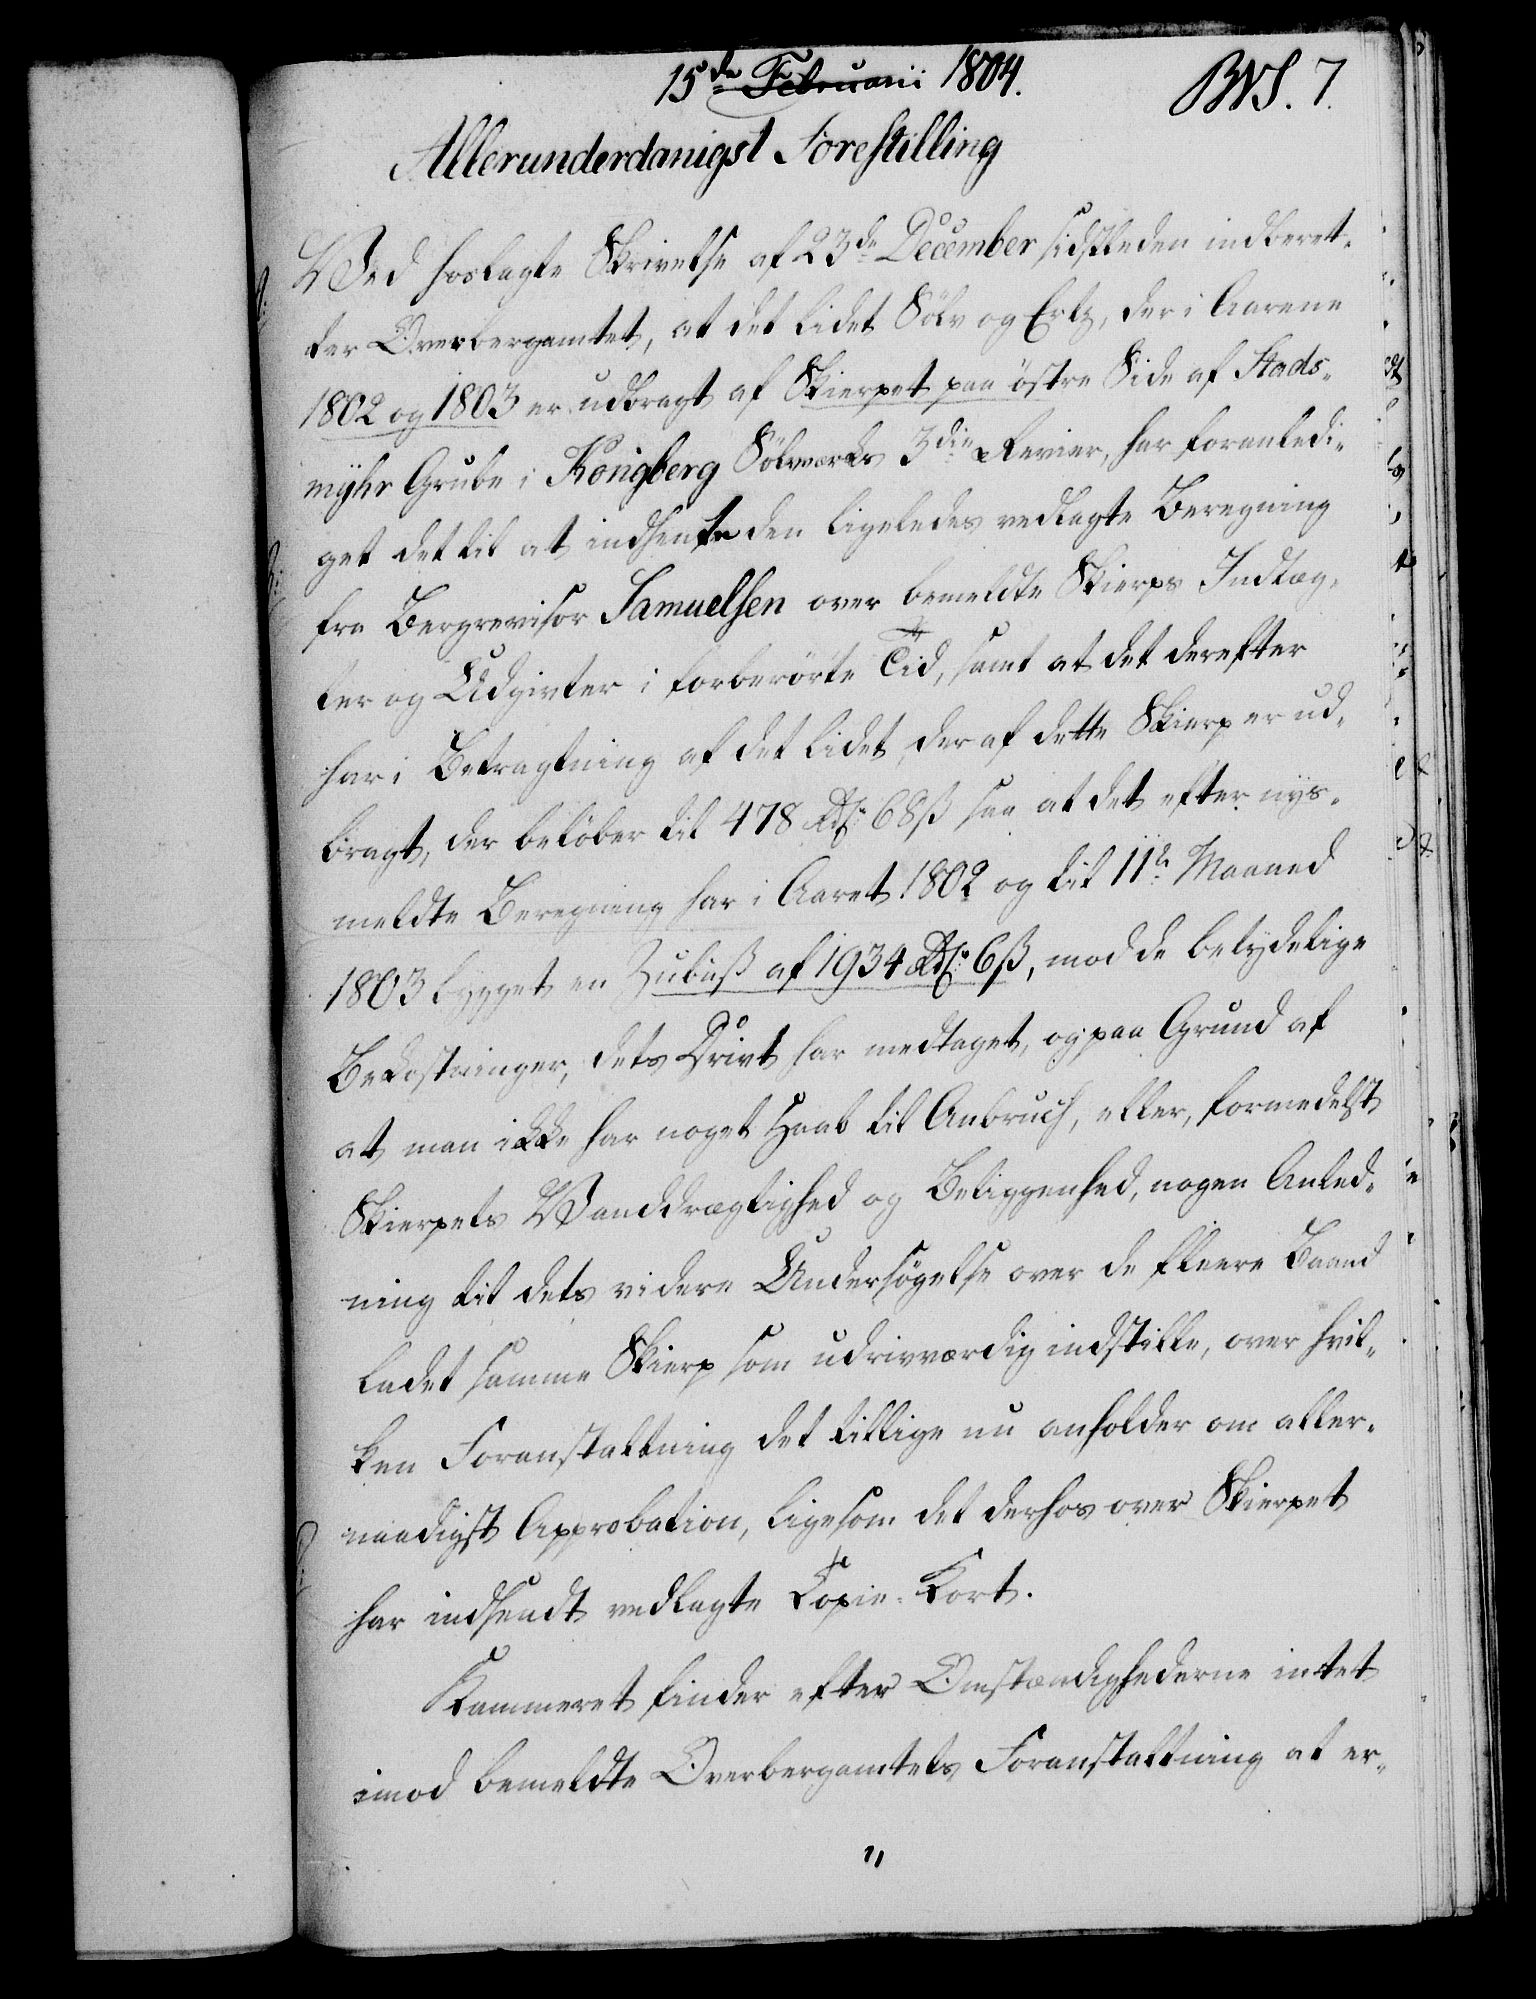 15de Februarii 1804.
BVS. 7.
Allerunderdanigst Forestilling
Ved hoslagte Skrivelse af 23de December sidstleden indberet-
ter Overbergamtet, at det lidet Sölv og Ertz, der i Aarene
1802 og 1803 er udbragt af Skierpet paa östre Side af Stads-
myhr Grube i Kongberg Sölvværks 3die Revier, har foranledi-
get det til at indhente den ligeledes vedlagte Beregning
fra Bergrevisor Samuelsen over bemeldte Skierps Indtæg-
ter og Udgivter i forberörte Tid, samt at det derefter
har i Betragtning af det lidet, der af dette Skierp er ud-
bragt, der belöber til 478 Rd: 68ß saa at det efter nys-
meldte Beregning har i Aaret 1802 og til 11te Maaned
1803 bygget en Zubuß af 1934 Rd: 6ß, mod de betydelige
Bekostninger, dets Drivt har medtaget, og paa Grund af
at man ikke har noget Haab til Anbruch, eller, formedelst
Skierpets Vanddrægtighed og Beliggenhed, nogen Anled-
ning til dets videre Undersögelse over de fleere Baand
ladet samme Skierp som udrivværdig indstille, over hvil-
ken Foranstaltning det tillige nu anholder om aller-
naadigst Approbation, ligesom det derhos over Skierpet
har indsendt vedlagte Kopie-Kort.
Kammeret finder efter Omstændighederne intet
imod bemeldte Overbergamtets Foranstaltning at er-
"